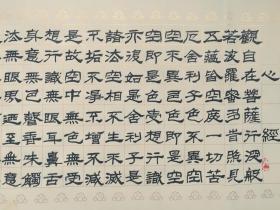 心經
觀自在菩薩行深般
若波羅蜜多時照見
五蘊皆空度一切苦
厄舍利子色不異空
空不異色色即是空
空即是色受想行識
亦復如是舍利子是
諸法空相不生不滅
不垢不淨不增不減
是故空中無色無受
想行識無眼耳鼻舌
身意無色聲香味觸
法無眼界乃至無意